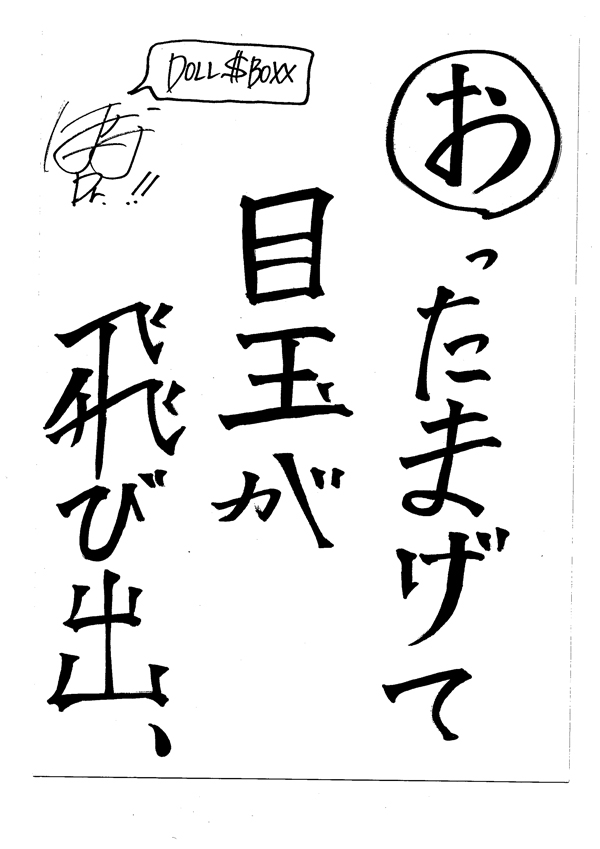 おったまげて
目玉が
飛び出、
DOLL$BOXX
Dr. !!